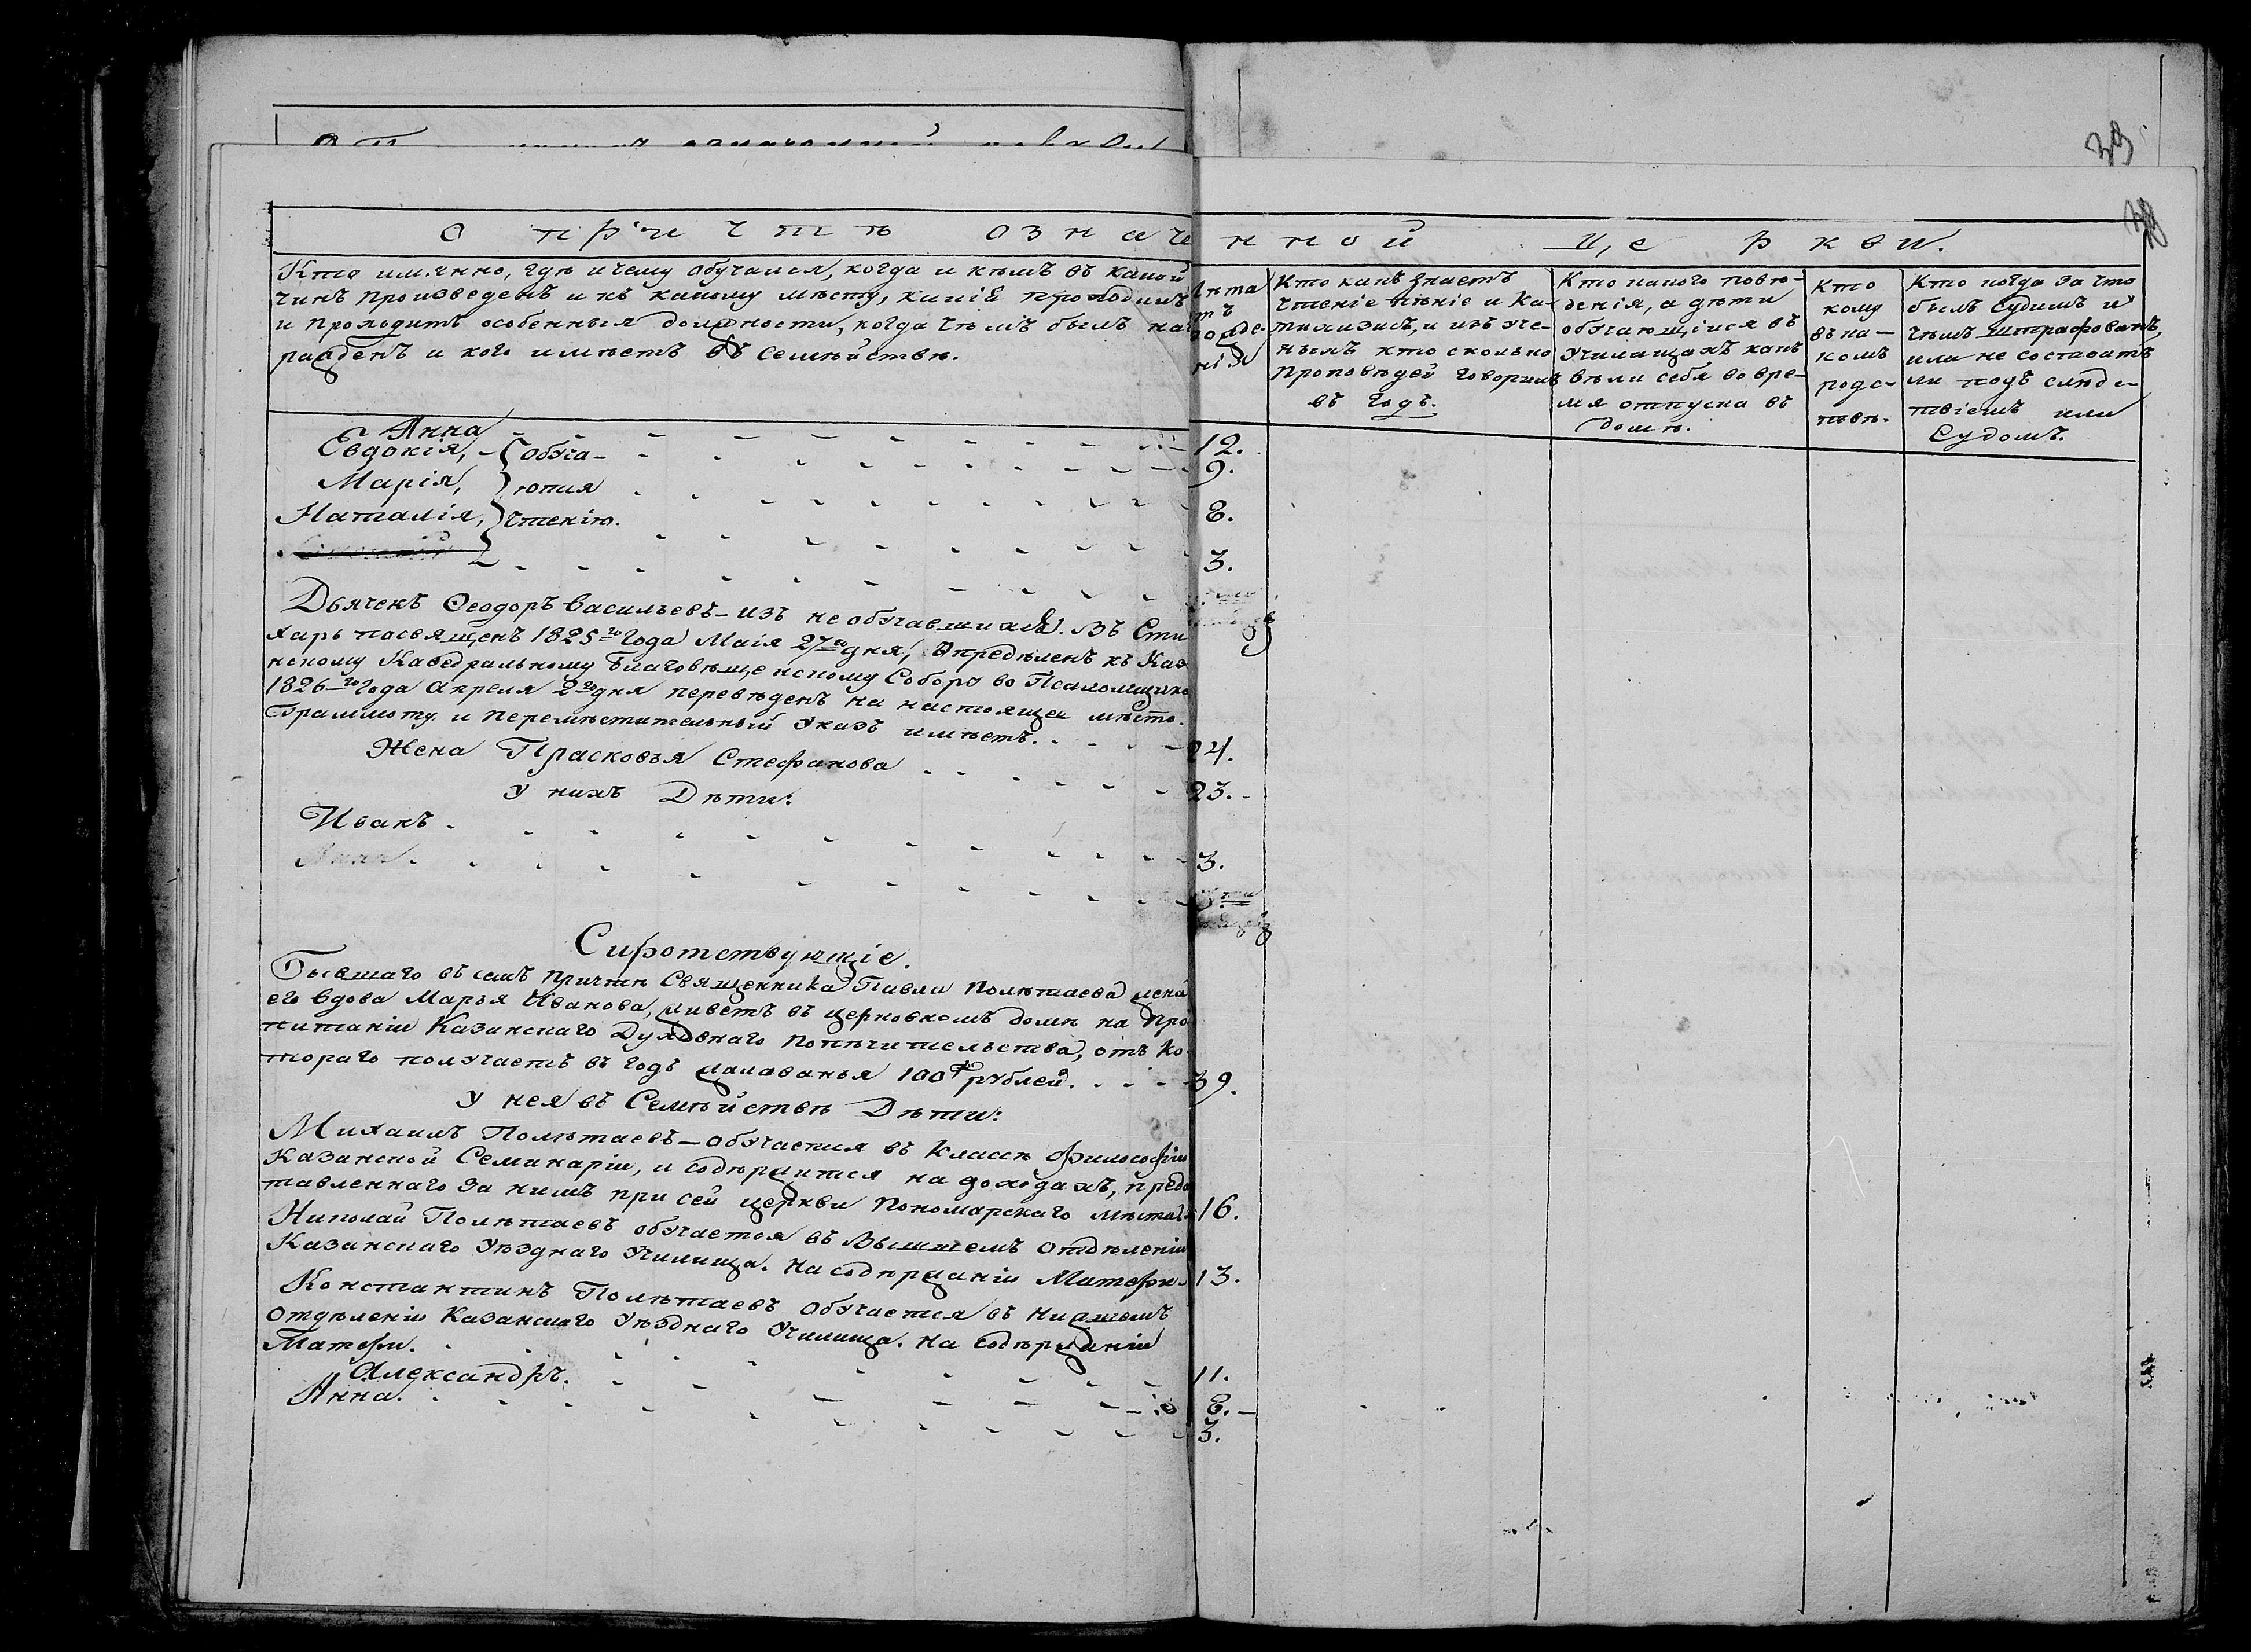 39
38
О причтѣ означенной церкви.
Кто имянно, гдѣ и чему обучался, когда и кѣмъ въ какой
чинъ произведенъ и къ какому мѣсту, какія проходилъ
и проходитъ особенныя должности, когда чѣмъ былъ наг
ражденъ и кого имѣетъ въ семѣйствѣ.
Лѣта
отъ
рожде-
нія
Кто какъ знаетъ
чтеніе пѣніе и Ка-
тихизисъ, и изъ уче-
ныхъ кто сколько
проповѣдей говорилъ
въ годъ.
Кто какого пове-
денія, а дѣти
обучающіися въ
Училищахъ какъ
вѣли себя во вре-
мя отпуска въ
домѣ.
Кто
кому
въ ка-
комъ
родс-
твѣ.
Кто когда за что
былъ судимъ и
чѣмъ штрафованъ,
или не состоитъ
ли подъ слѣдс-
твіемъ или
Судомъ.
Анна 12.
Евдокія, Обуча- 9.
Марія, ются 8.
Наталія, чтенію. 3.
Дьячекъ Ѳеодоръ Васильевъ - изъ необучавшихся. Въ Сти
харь посвященъ 1825го года Маія 27го дня, Опредѣленъ къ Каза
нскому Каѳедральному Благовѣщенскому Собору во Псаломщика
1826го года Апреля 2го дня перевѣденъ на настоящее мѣсто.
Граммоту и перемѣстительный Указъ имѣетъ. 24.
Жена Прасковья Стефанова 23.
У нихъ Дѣти:
Иванъ 3.
Анна
Сиротствующіе.
Бывшаго въ семъ причтѣ Священника Павла Полѣтаева жена
его вдова Марья Иванова, живетъ въ церковномъ домѣ на про
питаніи Казанскаго Духовнаго попѣчительства, отъ ко-
тораго получаетъ въ годъ жалованья 100 рублей. 39.
У нея въ Семѣйствѣ Дѣти:
Михаилъ Полѣтаевъ - обучается въ Классѣ Философіи
Казанской Семинаріи, и содѣржится на доходахъ, предос
тавленнаго за нимъ при сей церкви Пономарскаго мѣста 16.
Николай Полѣтаевъ обучается въ Высшемъ отдѣленіи
Казанскаго Уѣзднаго Училища. На содѣржаніи Матери. 13.
Константинъ Полѣтаевъ обучается въ Нижшемъ
отдѣленіи Казанскаго Уѣзднаго Училища. На содѣржаніи
Матери. 11.
Александръ. 8.
Анна. 3.